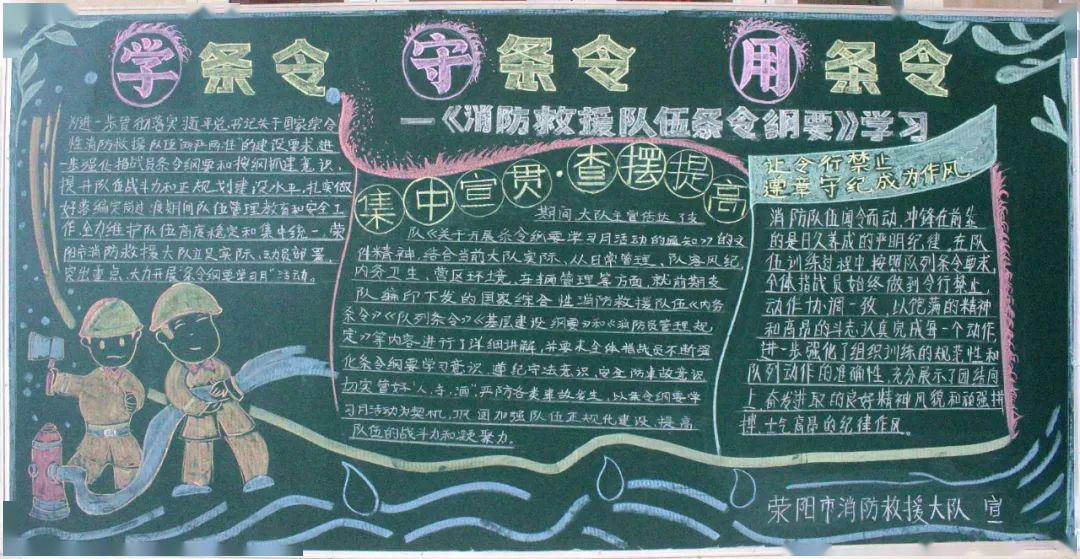 学条令 守条令 用条令
—《消防救援队伍条令纲要》学习
为进一步贯彻落实习近平总书记关于国家综合
性消防救援队伍两严两准的建设要求,进
一步强化指战员条令纲要和按纲抓建意识,
提升队伍战斗力和正规划建设水平,扎实做
好春编定岗过渡期间队伍管理教育和安全工
作,全力维护队伍高度稳定和集中统一,荥
阳市消防救援大队立足实际,动员部署,
突出重点,大力开展“条令纲要学习月”活动。
集中宣贯·查摆提高
期间,大队主官传达了支
队《关于开展条令纲要学习月活动的通知》的文
件精神,结合当前大队实际,从日常管理、队容风纪、
内务卫生、营区环境、车辆管理等方面,就前期支
队编印下发的国家综合性消防救援队伍《内务
条令》《队列条令》《基层建设纲要》和《消防员管理规
定》等内容进行了详细讲解,并要求全体指战员不断强
化条令纲要学习意识、遵纪守法意识、安全防事故意识,
切实管好“人、车、酒”,严防各类事故发生,以条令纲要学
习月活动为契机,巩固加强队伍正规化建设,提高
队伍的战斗力和凝聚力。
让令行禁止
遵章守纪成为作风
消防队伍闻令而动,冲锋在前靠
的是日久养成的严明纪律,在队
伍训练过程中按照队列条令要求,
全体指战员始终做到令行禁止,
动作协调一致,以饱满的精神
和高昂的斗志,认真完成每一个动作,
进一步强化了组织训练的规范性和
队列动作的准确性,充分展示了团结向
上,奋发进取的良好精神风貌和顽强拼
搏、士气高昂的纪律作风。
荥阳市消防救援大队 宣